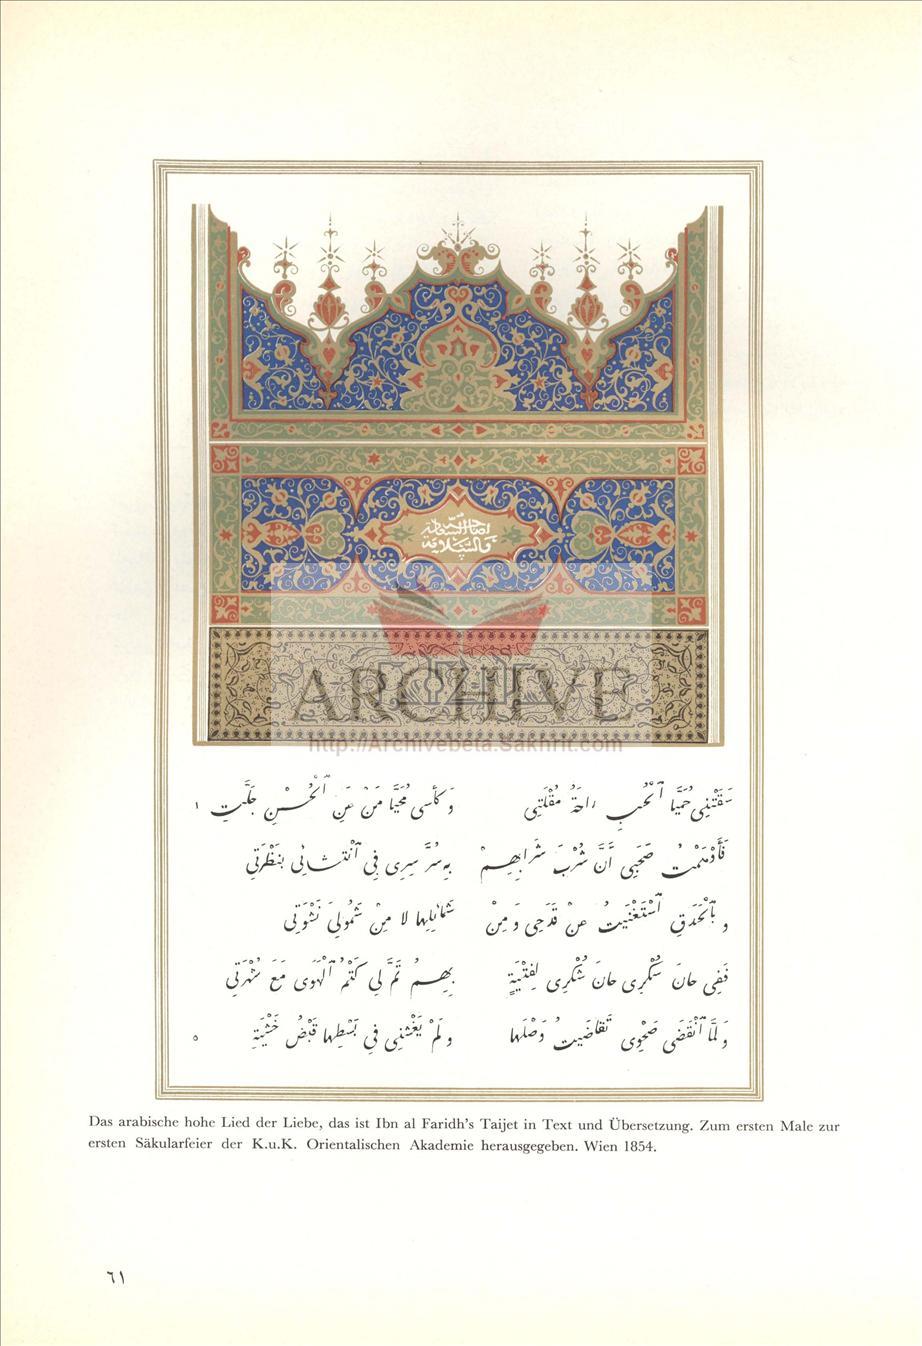 ARCHIVE
http://Archivebeta.Sakhrit.com
سَقَتْنِي حُمَيَّا ٱلْحُبِّ رَاحَةُ مُقْلَتِي وَكَأْسِي مُحَيَّا مَنْ عَنِ ٱلْحُسْنِ جَلَّتِ ١
فَأَوْهَمْتُ صَحْبِي أَنَّ شُرْبَ شَرَابِهِمْ بِهِ سُرَّ سِرِّي فِي ٱنْتِشَائِي بِنَظْرَتِي
وَبِٱلْحَدَقِ ٱسْتَغْنَيْتُ عَنْ قَدَحِي وَمِنْ شَمَائِلِهَا لَا مِنْ شَمُولِيَ نَشْوَتِي
فَفِي حَانَ سُكْرِي حَانَ شُكْرِي لِفِتْيَةٍ بِهِمْ تَمَّ لِي كَتْمُ ٱلْهَوَى مَعَ شُهْرَتِي
وَلَمَّا ٱنْقَضَى صَحْوِي تَقَاضَيْتُ وَصْلَهَا وَلَمْ يَغْشَنِي فِي بَسْطِهَا قَبْضُ خَشْيَةِ ٥
Das arabische hohe Lied der Liebe, das ist Ibn al Faridh's Taijet in Text und Übersetzung. Zum ersten Male zur
ersten Säkularfeier der K.u.K. Orientalischen Akademie herausgegeben. Wien 1854.
٦١